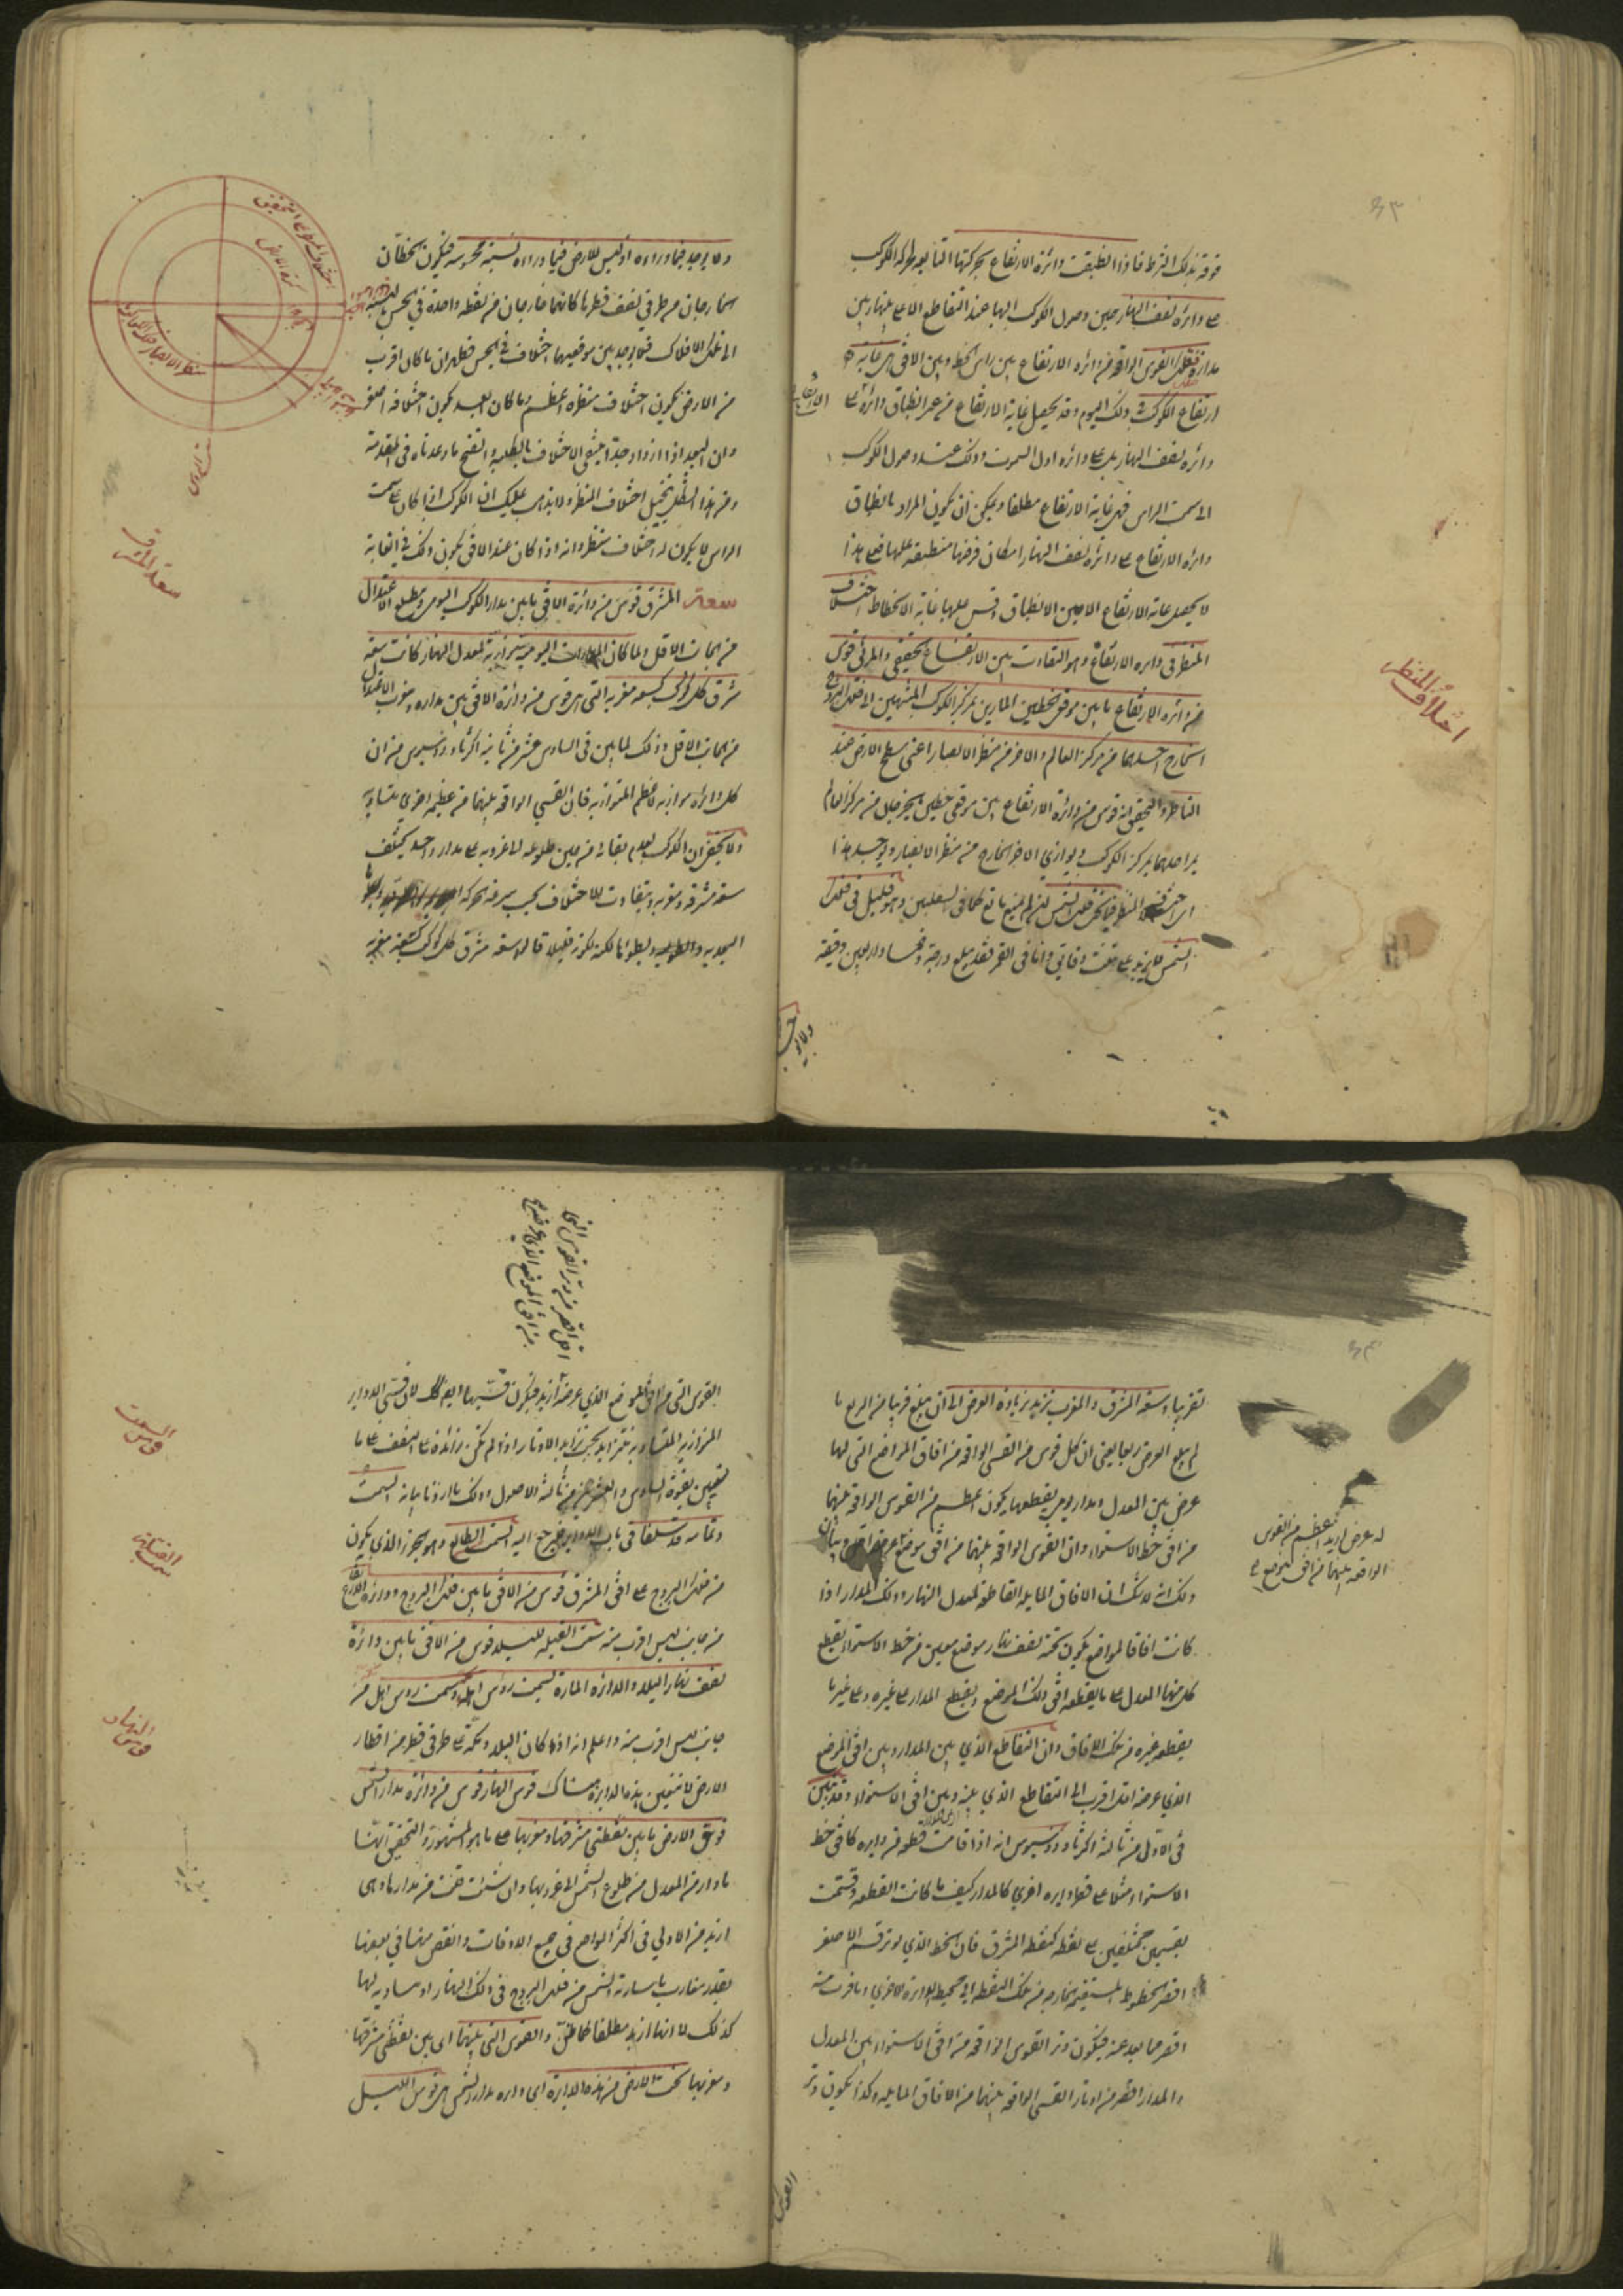 فوقه بذلك الشرط فاذا انطبقت دائرة الارتفاع بحركتها التابعة لحركة الكوكب
على دائرة نصف النهار حين وصول الكوكب اليها عند التقاطع الاعلى بينها وبين
مداره فتلك القوس الواقعة من دائرة الارتفاع بين راس الخط وبين الافق هي غاية
ارتفاع الكوكب في ذلك اليوم وقد يحصل غاية الارتفاع من غير انطباق دائرته على
دائرة نصف النهار بل على دائرة اول السموت وذلك عند وصول الكوكب
الى سمت الراس فهي غاية الارتفاع مطلقا ويمكن ان يكون المراد بانطباق
دائرة الارتفاع على دائرة نصف النهار امكان فرضها منطبقة عليها فعلى هذا
لا يحصل غاية الارتفاع الا حين الانطباق وقس عليها غاية الانحطاط اختلاف
المنظر في دائرة الارتفاع وهو التفاوت بين الارتفاع الحقيقي والمرئي قوس
من دائرة الارتفاع ما بين موقعي الخطين المارين بمركز الكوكب المنتهيين الى فلك البروج
الخارج احدهما من مركز العالم والاخر من منظر الابصار اعني سطح الارض عند
الناظر والتحقيق انه قوس من دائرة الارتفاع بين موقعي خطين يخرجان من مركز العالم
يمر احدهما بمركز الكوكب ويوازي الاخر الخارج من منظر الابصار ويوجد هذا
اي اختلاف المنظر فيما تحت فلك الشمس ان لم يمنع مانع كما في السفليين وهو قليل في فلك
الشمس لا يزيد على ثلث دقائق واما في القمر فقد يبلغ درجة وخمسا واربعين دقيقة
اختلاف المنظر
ولا يوجد فيما وراءه اذ ليس للارض فيما وراءه نسبة محسوسة فيكون الخطان
الخارجان من طرفي نصف قطرها كانهما خارجان من نقطة واحدة في الحس بالنسبة
الى تلك الافلاك فلا يوجد بين موقعيهما اختلاف في الحس فظهر ان ما كان اقرب
من الارض يكون اختلاف منظره اعظم وما كان ابعد يكون اختلافه اصغر
وان البعد اذا ازداد جدا ينتفي الاختلاف بالكلية واتضح ما وعدناه في المقدمة
ومن هذا الشكل يتخيل اختلاف المنظر ولا يذهب عليك ان الكوكب اذا كان على سمت
الراس لا يكون له اختلاف منظر وانه اذا كان عند الافق يكون ذلك في الغاية
سعة المشرق قوس من دائرة الافق ما بين مدار الكوكب اليومي ومطلع الاعتدال
من الجانب الاقل ولما كان المدارات اليومية موازية لمعدل النهار كانت سعة
مشرق كل كوكب كسعة مغربه التي هي قوس من دائرة الافق بين مداره ومغرب الاعتدال
من الجانب الاقل وذلك لما بين في السادس عشر من ثانية اكر ثاودوسيوس من ان
كل دائرة موازية لاعظم المتوازية فان القسي الواقعة بينهما من عظيمة اخرى متساوية
ولا يخفى ان الكوكب لعدم بقائه من حين طلوعه الى غروبه على مدار واحد يختلف
سعة مشرقه ومغربه ويتفاوت الاختلاف بحسب سرعة حركة
البعدية وبطؤها لكن لكونه قليلا قالوا سعة مشرق كل كوكب كسعة مغربه
سعة المشرق
تقريبا وسعة المشرق والمغرب تزيد بزيادة العرض الى ان يبلغ قريبا من الربع ما
لم يبلغ العرض ربعا يعني ان كل قوس من القسي الواقعة من افاق المواضع التي لها
عرض بين المعدل ومدار يومي يقطعها يكون اعظم من القوس الواقعة بينهما
من افق خط الاستواء وان القوس الواقعة بينهما من افق موضع
ذلك انه لا شك ان الافاق المايلة القاطعة لمعدل النهار وذلك المدار اذا
كانت افاقا لمواضع يكون تحت نصف نهار موضع معين من خط الاستواء يقطع
كل منها المعدل على ما يقطعه افق ذلك الموضع ويقطع المدار على غيره وعلى غير ما
يقطعه غيره من تلك الافاق وان التقاطع الذي بين المدار وبين افق الموضع
الذي عرضه اقل اقرب الى التقاطع الذي بينه وبين افق الاستواء وقد تبين
في الاولى من ثالثة اكر ثاودوسيوس انه اذا قامت قطعة من دايرة كافق خط
الاستواء مثلا على قطع دايرة اخرى كالمدار كيف ما كانت القطعة وقسمت
بقسمين مختلفين على نقطة كنقطة المشرق فان الخط الذي يوتر قسم الاصغر
اقصر الخطوط المستقيمة الخارجة من تلك النقطة الى محيط الدايرة الاخرى وما قرب منه
اقصر مما بعد عنه فيكون وتر القوس الواقعة من افق الاستواء بين المعدل
والمدار اقصر من اوتار القسي الواقعة بينهما من الافاق المايلة وكذا يكون وتر
له عرض ازيد اعظم من القوس
الواقعة بينهما من افق الموضع
القوس
القوس التي من افق الموضع الذي عرضه ازيد فيكون قسيها ايضا كذلك لان قسي الدواير
المتوازية المتساوية تتزايد بحسب تزايد الاوتار اذا لم يكن زائدة على النصف على ما
تبين بقوة السادس والعشرين من ثالثة الاصول وذلك ما اردنا بيانه السمت
وتمامه قد سلفا في باب الدواير فليرجع اليه السمت الطالع وهو الجزء الذي يكون
من فلك البروج على افق المشرق قوس من الافق ما بين فلك البروج ودائرة الارتفاع
من جانب ليس اقرب منه سمت القبلة للبلد قوس من الافق ما بين دائرة
نصف نهار البلد والدائرة المارة بسمت رؤس اهله وسمت رؤس اهل مكة
جانب ليس اقرب منه واعلم انه اذا كان البلد ومكة على طرفي قطر من اقطار
الارض لا تتعين هذه الدايرة هناك قوس النهار قوس من دائرة مدار الشمس
فوق الارض ما بين نقطتي مشرقها ومغربها على ما هو المشهور والتحقيق انها
ما دار من المعدل من طلوع الشمس الى غروبها وان شئت قلت من مدارها وهي
ازيد من الاولى في اكثر المواضع في جميع الاوقات وانقص منها في بعضها
بقدر مقارب ما سارته الشمس من فلك البروج في ذلك النهار او مساوية لها
كذلك لا انها ازيد مطلقا كما ظن والقوس التي بينهما اي بين نقطتي مشرقها
ومغربها تحت الارض من هذه الدايرة اي دايرة مدار الشمس هي قوس الليل
قوس السمت
قوس النهار